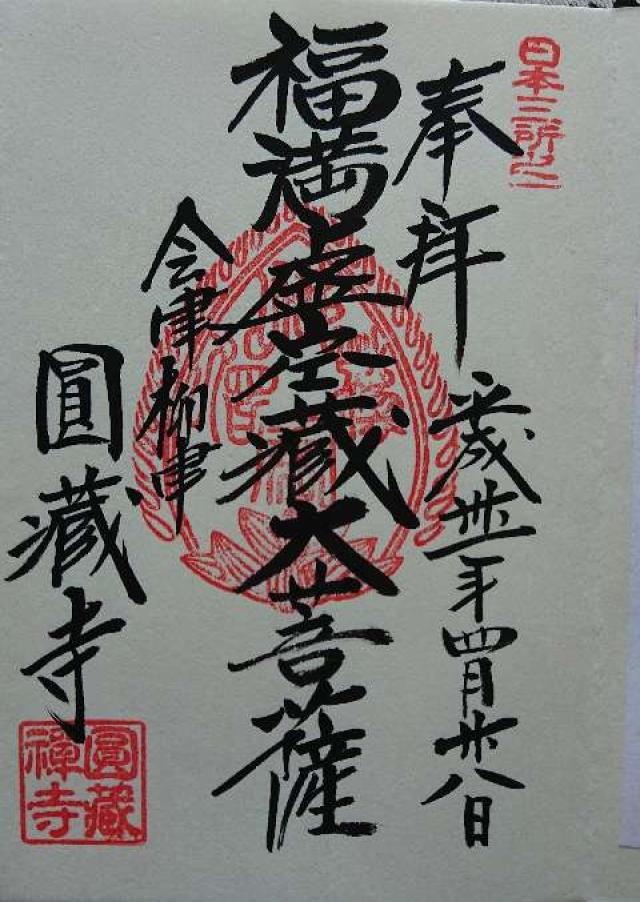 日本三所之一
奉拝 平成卅一年四月廿八日
福満虚空蔵大菩薩
会津柳津
圓蔵寺
圓蔵禅寺